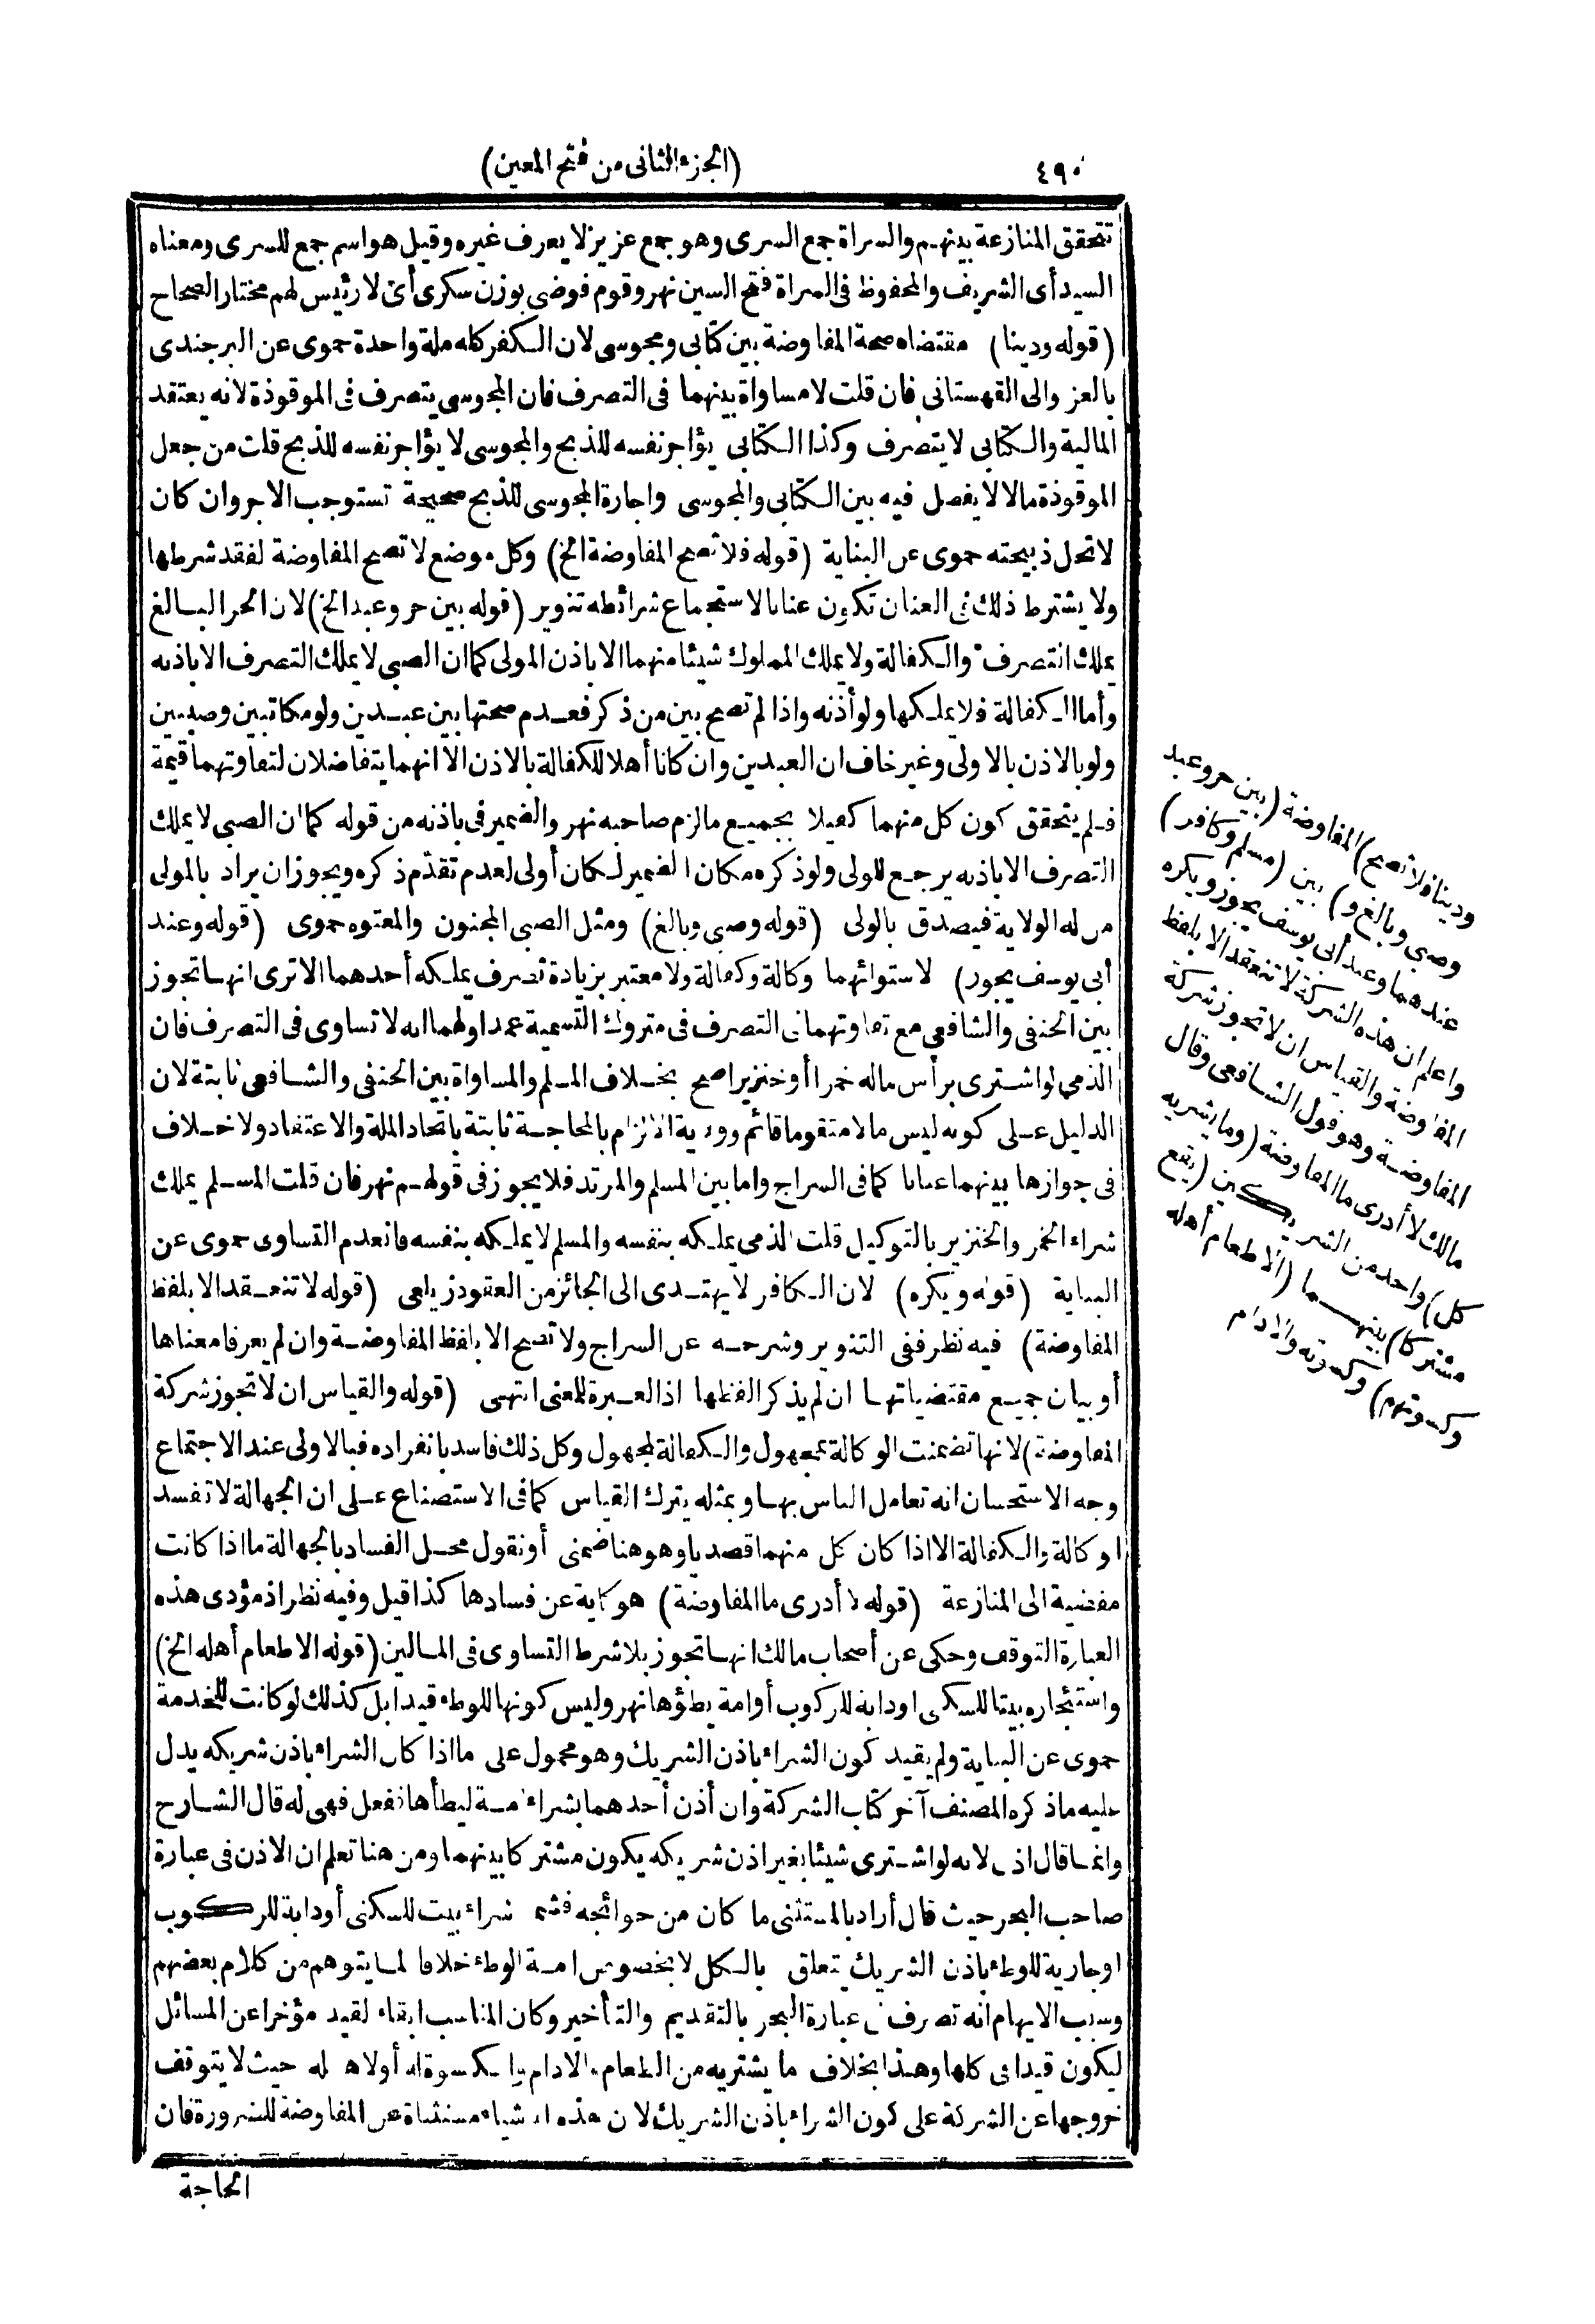 ٤٩٠
(الجزء الثانى من فتح المعين)
تتحقق المنازعة بينهم والسراة جمع السرى وهو جمع عزيز لا يعرف غيره وقيل هو اسم جمع للسرى ومعناه
السيد أى الشريف والمحفوظ فى السراة فتح السين نهر وقوم فوضى بوزن سكرى أى لا رئيس لهم مختار الصحاح
(قوله ودينا) مقتضاه صحة المفاوضة بين كتابى ومجوسى لان الكفر كله ملة واحدة حموى عن البرجندى
بالعز والى القهستانى فان قلت لا مساواة بينهما فى التصرف فان المجوسى يتصرف فى الموقوذة لانه يعتقد
المالية والكتابى لا يتصرف وكذا الكتابى يؤاجر نفسه للذبح والمجوسى لا يؤاجر نفسه للذبح قلت من جعل
الموقوذة مالا لا يفصل فيه بين الكتابى والمجوسى واجارة المجوسى للذبح صحيحة تستوجب الاجر وان كان
لا تحل ذبيحته حموى عن البناية (قوله فلا تصح المفاوضة الخ) وكل موضع لا تصح المفاوضة لفقد شرطها
ولا يشترط ذلك فى العنان تكون عنانا لاستجماع شرائطه تنوير (قوله بين حر وعبد الخ) لان الحر البالغ
يملك التصرف والكفالة ولا يملك المملوك شيئا منهما الا باذن المولى كما ان الصبى لا يملك التصرف الا باذنه
وأما الكفالة فلا يملكها ولو أذنه واذا لم تصح بين من ذكر فعدم صحتها بين عبدين ولو مكاتبين وصبيين
ولو بالاذن بالاولى وغير خاف ان العبدين وان كانا أهلا للكفالة بالاذن الا انهما يتفاضلان لتفاوتهما قيمة
فلم يتحقق كون كل منهما كفيلا بجميع ما لزم صاحبه نهر والضمير فى باذنه من قوله كما ان الصبى لا يملك
التصرف الا باذنه يرجع للولى ولو ذكره مكان الضمير لكان أولى لعدم تقدّم ذكره ويجوز ان يراد بالمولى
من له الولاية فيصدق بالولى (قوله وصبى وبالغ) ومثل الصبى المجنون والمعتوه حموى (قوله وعند
أبى يوسف يجوز) لاستوائهما وكالة وكفالة ولا معتبر بزيادة تصرف يملكه أحدهما الا ترى انها تجوز
بين الحنفى والشافعى مع تفاوتهما فى التصرف فى متروك التسمية عمدا ولهما انه لا تساوى فى التصرف فان
الذمى لو اشترى برأس ماله خمرا أو خنزيرا صح بخلاف المسلم والمساواة بين الحنفى والشافعى ثابتة لان
الدليل على كونه ليس مالا متقوما قائم وولاية الالزام بالمحاجة ثابتة باتحاد الملة والاعتقاد ولا خلاف
فى جوازها بينهما عنانا كما فى السراج واما بين المسلم والمرتد فلا يجوز فى قولهم نهر فان قلت المسلم يملك
شراء الخمر والخنزير بالتوكيل قلت الذمى يملكه بنفسه والمسلم لا يملكه بنفسه فانعدم التساوى حموى عن
البناية (قوله ويكره) لان الكافر لا يهتدى الى الجائز من العقود زيلعى (قوله لا تنعقد الا بلفظ
المفاوضة) فيه نظر ففى التنوير وشرحه عن السراج ولا تصح الا بلفظ المفاوضة وان لم يعرفا معناها
أو بيان جميع مقتضياتها ان لم يذكر الفظها اذ العبرة للمعنى انتهى (قوله والقياس ان لا تجوز شركة
المفاوضة) لانها تضمنت الوكالة بمجهول والكفالة لمجهول وكل ذلك فاسد بانفراده فبالاولى عند الاجتماع
وجه الاستحسان انه تعامل الناس بها وبمثله يترك القياس كما فى الاستصناع على ان الجهالة لا تفسد
الوكالة والكفالة الا اذا كان كل منهما قصديا وهو هنا ضمنى أو نقول محل الفساد بالجهالة ما اذا كانت
مفضية الى المنازعة (قوله لا أدرى ما المفاوضة) هو كناية عن فسادها كذا قيل وفيه نظر اذ مؤدى هذه
العبارة التوقف وحكى عن أصحاب مالك انها تجوز بلا شرط التساوى فى المالين (قوله الا طعام أهله الخ)
واستئجاره بيتا للسكنى او دابة للركوب أو امة يطؤها نهر وليس كونها للوطء قيدا بل كذلك لو كانت للخدمة
حموى عن البناية ولم يقيد كون الشراء باذن الشريك وهو محمول على ما اذا كان الشراء باذن شريكه يدل
عليه ما ذكره المصنف آخر كتاب الشركة وان أذن أحدهما بشراء امة ليطأها ففعل فهى له قال الشارح
وانما قال اذن لانه لو اشترى شيئا بغير اذن شريكه يكون مشتركا بينهما ومن هنا تعلم ان الاذن فى عبارة
صاحب البحر حيث قال أراد بالمستثنى ما كان من حوائجه فشمل شراء بيت للسكنى أو دابة للركوب
او جارية للوطء باذن الشريك تتعلق بالكل لا بخصوص امة الوطء خلافا لما يتوهم من كلام بعضهم
وسبب الايهام انه تصرف فى عبارة البحر بالتقديم والتأخير وكان المناسب ابقاء القيد مؤخرا عن المسائل
ليكون قيدا فى كلها وهذا بخلاف ما يشتريه من الطعام والادام والكسوة له أو لاهله حيث لا يتوقف
خروجها عن الشركة على كون الشراء باذن الشريك لان هذه الاشياء مستثناة عن المفاوضة للضرورة فان
الحاجة
ودينا فلا تصح) المفاوضة (بين حر وعبد
وصبى وبالغ و) بين (مسلم وكافر)
عندهما وعند أبى يوسف يجوز ويكره
واعلم ان هذه الشركة لا تنعقد الا بلفظ
المفاوضة والقياس ان لا تجوز شركة
المفاوضة وهو قول الشافعى وقال
مالك لا أدرى ما المفاوضة (وما يشتريه
كل) واحد من الشريكين (يقع
مشتركا) بينهما (الا طعام أهله
وكسوتهم) وكسوته والادام